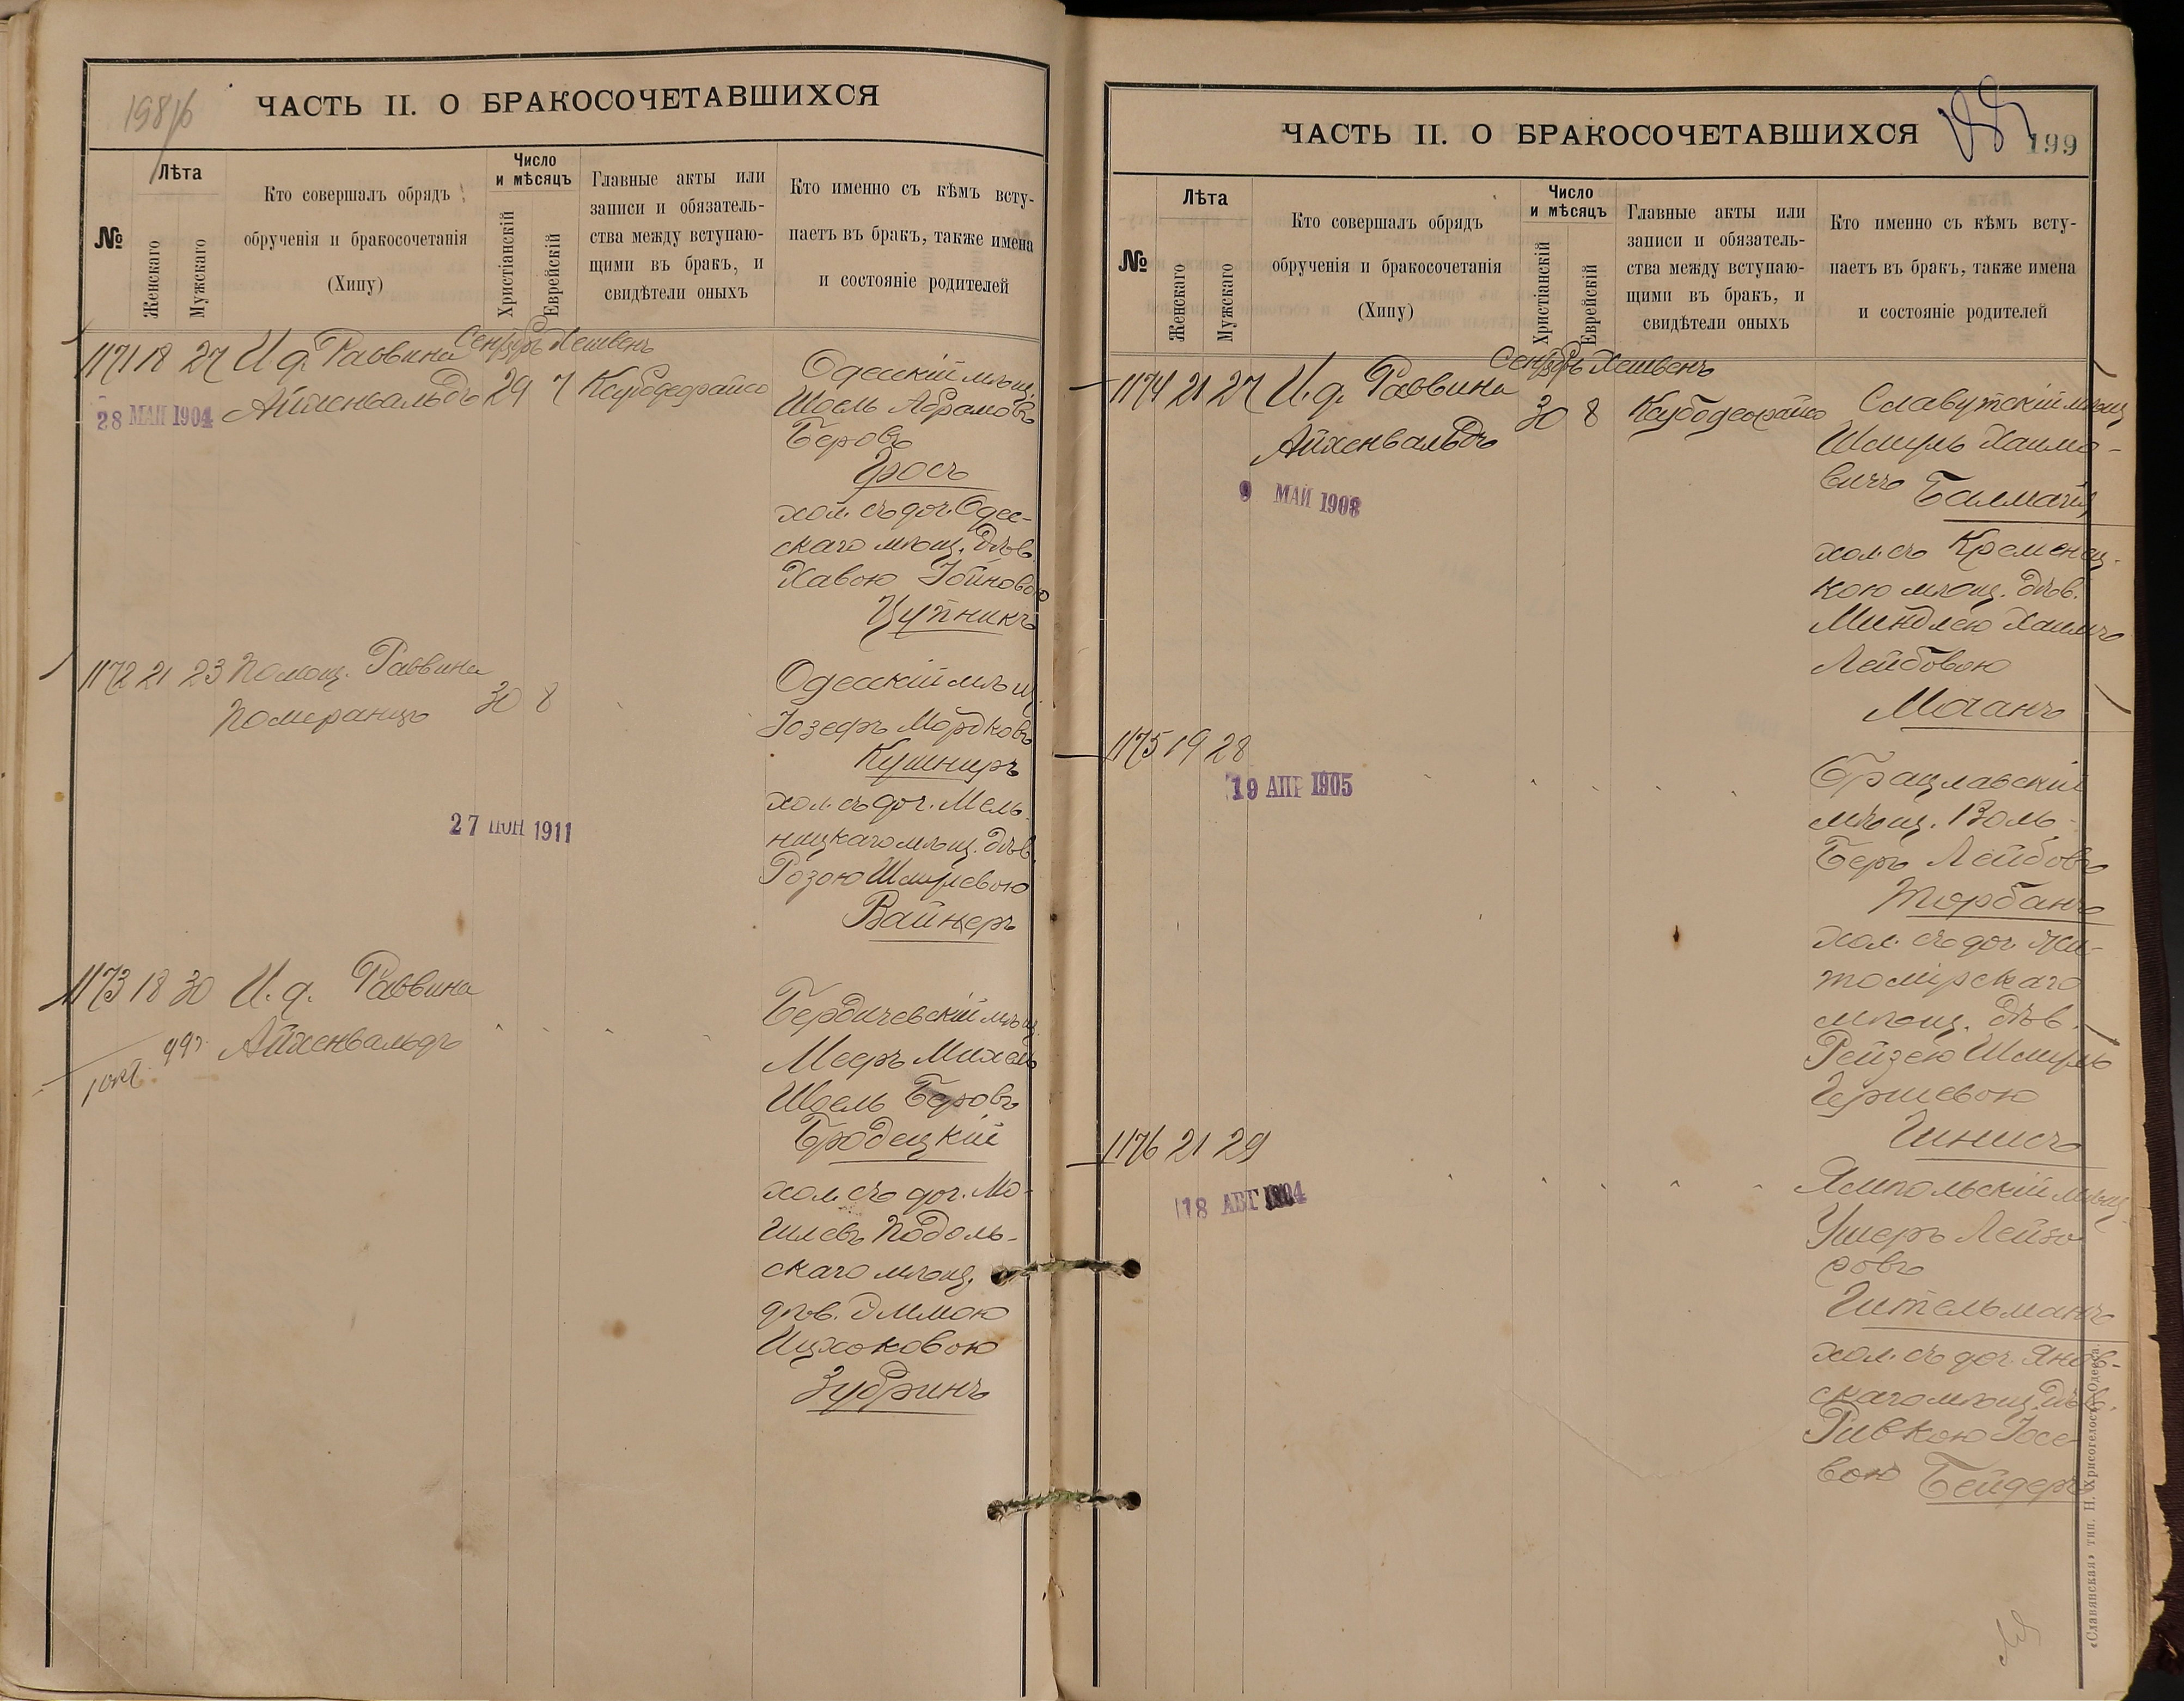 198/б
ЧАСТЬ II. О БРАКОСОЧЕТАВШИХСЯ
№
Лѣта
Женскаго
Мужскаго
Кто совершалъ обрядъ
обрученія и бракосочетанія
(Хипу)
Число
и мѣсяцъ
Христіанскій
Еврейскій
Главные акты или
записи и обязатель-
ства между вступаю-
щими въ бракъ, и
свидѣтели оныхъ
Кто именно съ кѣмъ всту-
паетъ въ бракъ, также имена
и состояніе родителей
Сентябрь Хешвень
1171 18 27 И. д. Раввина
Айхенвальдъ 29 7
28 МАЙ 1904
Одесскій мѣщ.
Шоель Абрамовъ
Беровъ
Гросъ
хол. съ доч. Одес-
скаго мѣщ. дѣв.
Хавою Іойновою
Цупникъ
1172 21 23 Помощ. Раввина
Померанцъ 30 8
27 ІЮН 1911
Одесскій мѣщ
Іозефъ Мордковъ
Кушниръ
хол. съ доч. Мель-
ницкаго мѣщ. дѣв.
Розою Шмулевою
Вайнеръ
1173 18 30 И. д. Раввина
Айхенвальдъ
Бердичевскій мѣщ.
Мееръ Михель
Шоель Беровъ
Бродецкій
хол. съ доч. Мо-
гилевъ Подоль-
скаго мѣщ.
дѣв. Эммою
Ицхоковою
Зубринъ
ЧАСТЬ II. О БРАКОСОЧЕТАВШИХСЯ
199
№
Лѣта
Женскаго
Мужскаго
Кто совершалъ обрядъ
обрученія и бракосочетанія
(Хипу)
Число
и мѣсяцъ
Христіанскій
Еврейскій
Главные акты или
записи и обязатель-
ства между вступаю-
щими въ бракъ, и
свидѣтели оныхъ
Кто именно съ кѣмъ всту-
паетъ въ бракъ, также имена
и состояніе родителей
Сентябрь Хешвень
1174 21 27 И. д. Раввина
Айхенвальдъ 30 8
9 МАЙ 1908
Славутскій мѣщ
Шмуль Хаимо-
вичъ
хол. съ Кременец-
кою мѣщ. дѣв.
Миндлею Хаимъ
Лейбовою
Мочанъ
1175 19 28
19 АПР 1905
Брацлавскій
мѣщ. Воль-
Беръ Лейбовъ
Торбанъ
хол. съ доч. Жи-
томірскаго
мѣщ. дѣв.
Рейзею Шмуль
Гершевою
1176 21 29
18 АВГ 1904
Ямпольскій мѣщ.
Ушеръ Лейзо-
ровъ
Гительманъ
хол. съ доч. Янов-
скаго мѣщ. дѣв.
Ривкою Іосе-
вою Бейдеръ
«Славянская» тип. Н. Хрисогелосъ, Одесса.